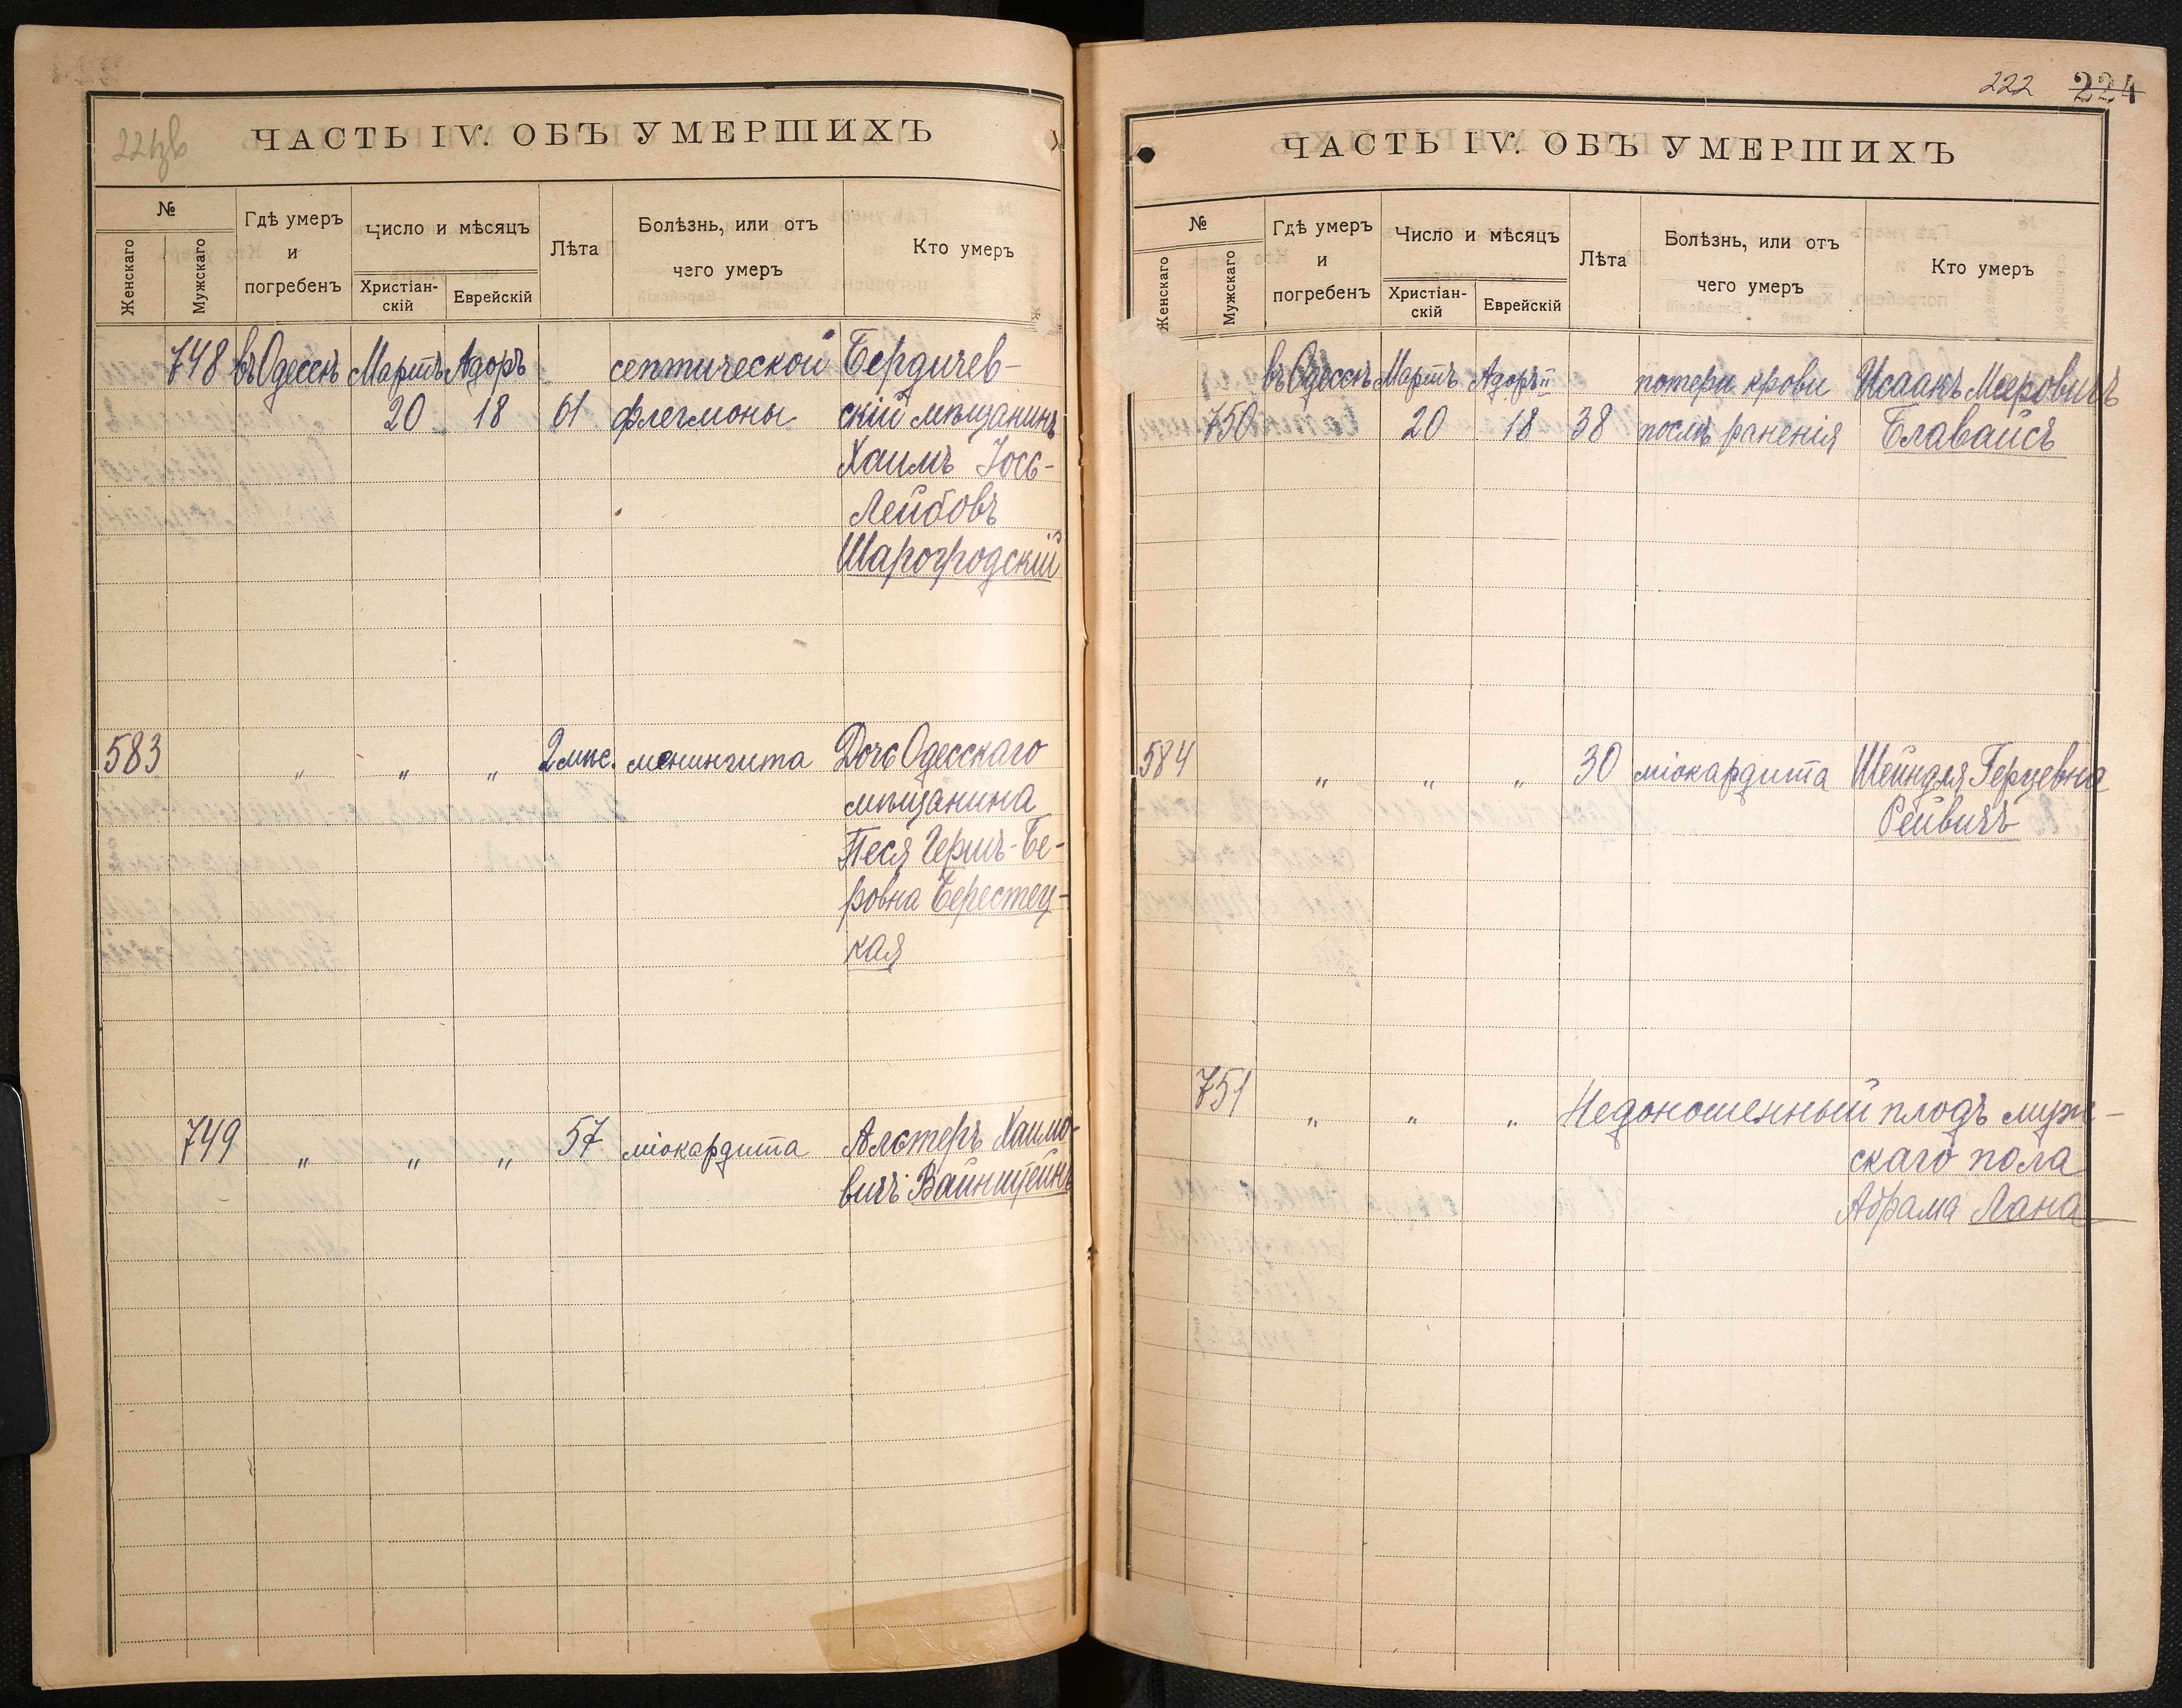 ЧАСТЬ IV. ОБЪ УМЕРШИХЪ
№
Женскаго
Мужскаго
Гдѣ умеръ
и
погребенъ
Число и мѣсяцъ
Христіан-
скій
Еврейскій
Лѣта
Болѣзнь, или отъ
чего умеръ
Кто умеръ
748 въ Одессѣ Мартъ Адоръ септической Бердичев-
20 18 61 флегмоны скій мѣщанинъ
Хаимъ Іось-
Лейбовъ
Шарогродскій
583 " " " 2 мѣс. менингита Дочь Одесскаго
мѣщанина
Песя Гершъ-Бе-
ровна Берестец-
кая
749 " " " 57 міокардита Алтеръ Хаимо-
вичъ Вайнштейнъ
222 224
ЧАСТЬ IV. ОБЪ УМЕРШИХЪ
№
Женскаго
Мужскаго
Гдѣ умеръ
и
погребенъ
Число и мѣсяцъ
Христіан-
скій
Еврейскій
Лѣта
Болѣзнь, или отъ
чего умеръ
Кто умеръ
въ Одессѣ Мартъ Адоръ II потери крови Исаакъ Мееровичъ
750 20 18 38 послѣ раненія Блавайсъ
584 " " " 30 міокардита Шейндля Герцевна
Рейвичъ
751 " " " Недоношенный плодъ муж-
скаго пола
Абрама Лана